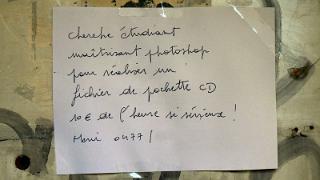 cherche étudiant
maîtrisant photoshop
pour réaliser un
fichier de pochette CD
10€ de l'heure si sérieux !
Merci 0477/